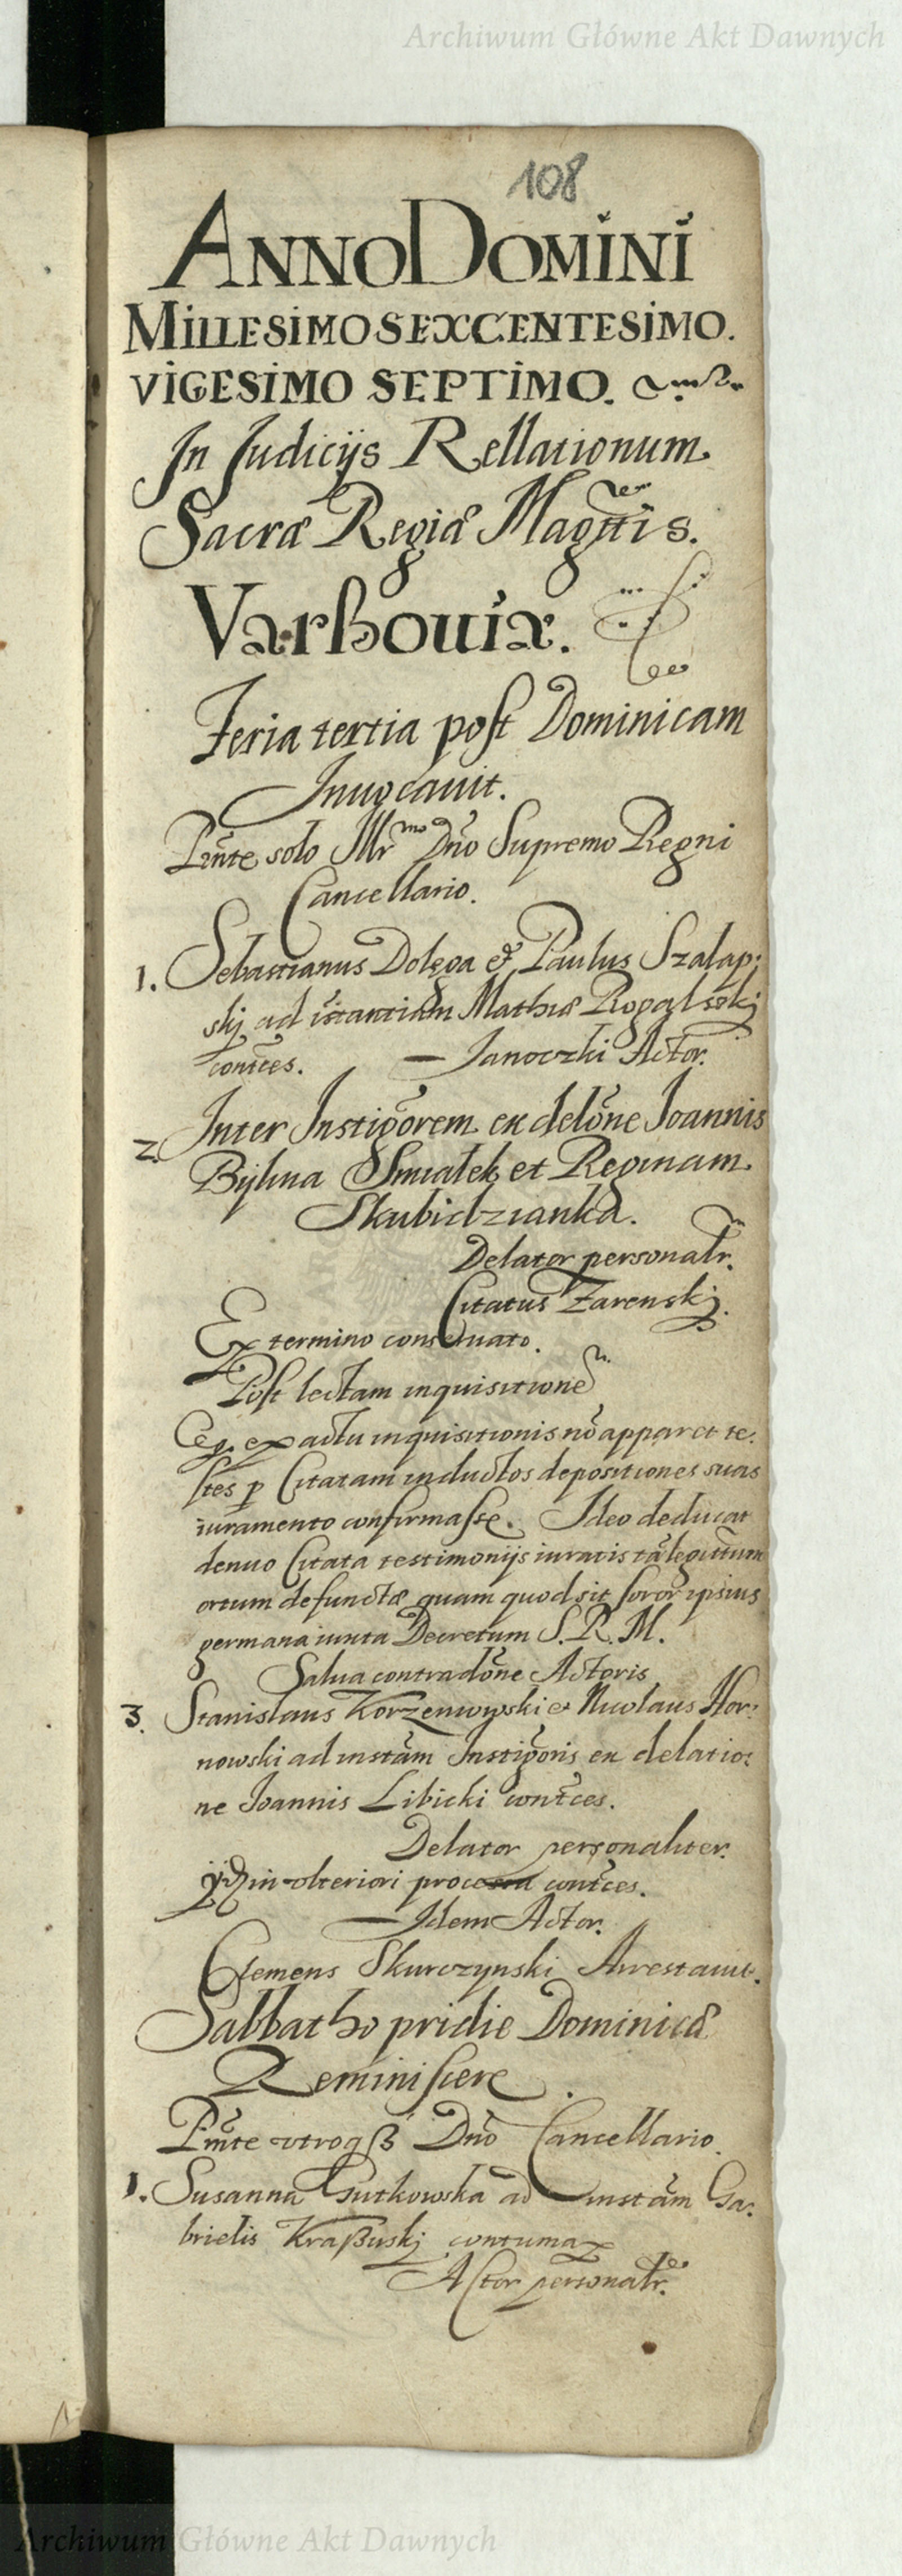 Archiwum Główne Akt Dawnych
108
ANNO DOMINI
MILLESIMO SEXCENTESIMO.
VIGESIMO SEPTIMO.
In Judicijs Rellationum
Sacræ Regiæ Magttis.
Varßouiæ.
Feria tertia post Dominicam
Inuocauit.
Pnte solo Mrmo Dno Supremo Regni
Cancellario.
1. Sebastianus Dolęga et Paulus Szalap:
skj ad istantiam Mathiæ Rogalskj
contces. — Janoczki Actor.
2. Inter Instigorem ex delone Joannis
Bijlina Smialek et Reginam
Skubidzianka.
Delator personalr.
Citatus Zarenskj.
Ex termino conseruato.
Post lectam inquisitione
ex actu inquisitionis no apparet te:
stes p Citatam inductos depositiones suas
iuramento confirmasse. Ideo deducat
denuo Citata testimonijs iuratis ta legittimum
ortum defunctæ quam quod sit soror ipsius
germana iuxta Decretum S. R. M.
Salua contradone Actoris
3. Stanislaus Korzeniowski et Nicolaus Hor:
nowski ad instam Instigoris ex delatio:
ne Joannis Libicki contces.
Delator personaliter.
in vlteriori contces.
— Idem Actor.
Clemens Skurczynski Arrestauit.
Sabbatho pridie Dominicæ
Reminiscere.
Pnte vtroqß Dno Cancellario.
1. Susanna Gutkowska ad instam Ga:
brielis Kraßuskj contumax
Actor personalr.
Archiwum Główne Akt Dawnych